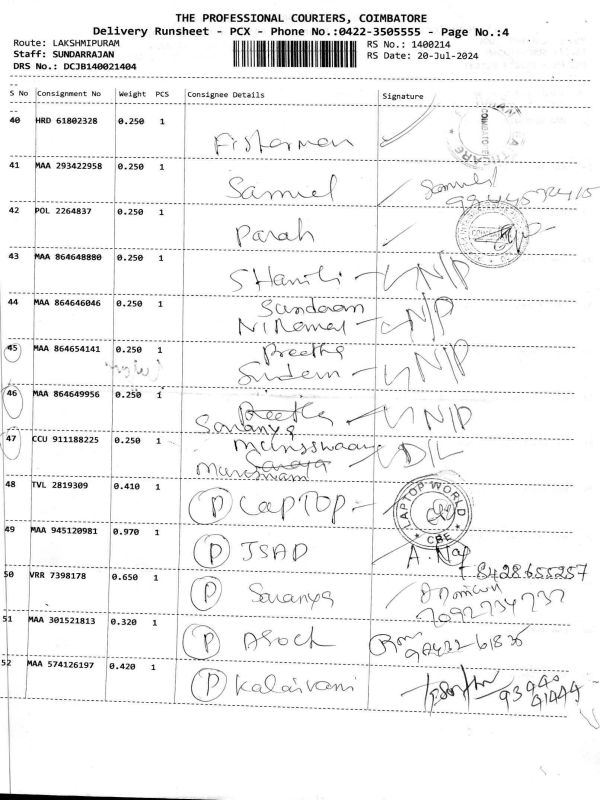 THE PROFESSIONAL COURIERS, COIMBATORE
Delivery Runsheet - PCX - Phone No.:0422-3505555 - Page No.:4
Route: LAKSHMIPURAM RS No.: 1400214
Staff: SUNDARRAJAN RS Date: 20-Jul-2024
DRS No.: DCJB140021404
S No Consignment No Weight PCS Consignee Details Signature
40 HRD 61802328 0.250 1
Fisherman
41 MAA 293422958 0.250 1
Samuel Samuel
42 POL 2264837 0.250 1
Parah
43 MAA 864648880 0.250 1
N/P
44 MAA 864646046 0.250 1
Sundaram
N/P
45 MAA 864654141 0.250 1
Preetha
N/P
46 MAA 864649956 0.250 1
Preetha
Saranya N/P
47 CCU 911188225 0.250 1
D/L
Saranya
48 TVL 2819309 0.410 1
P LAPTOP LAPTOP WORLD CBE
49 MAA 945120981 0.970 1
P JSAD
8428655257
50 VRR 7398178 0.650 1
P Saranya
7092734737
51 MAA 301521813 0.320 1
P Asock
52 MAA 574126197 0.420 1
P Kalaivani 93940
41444